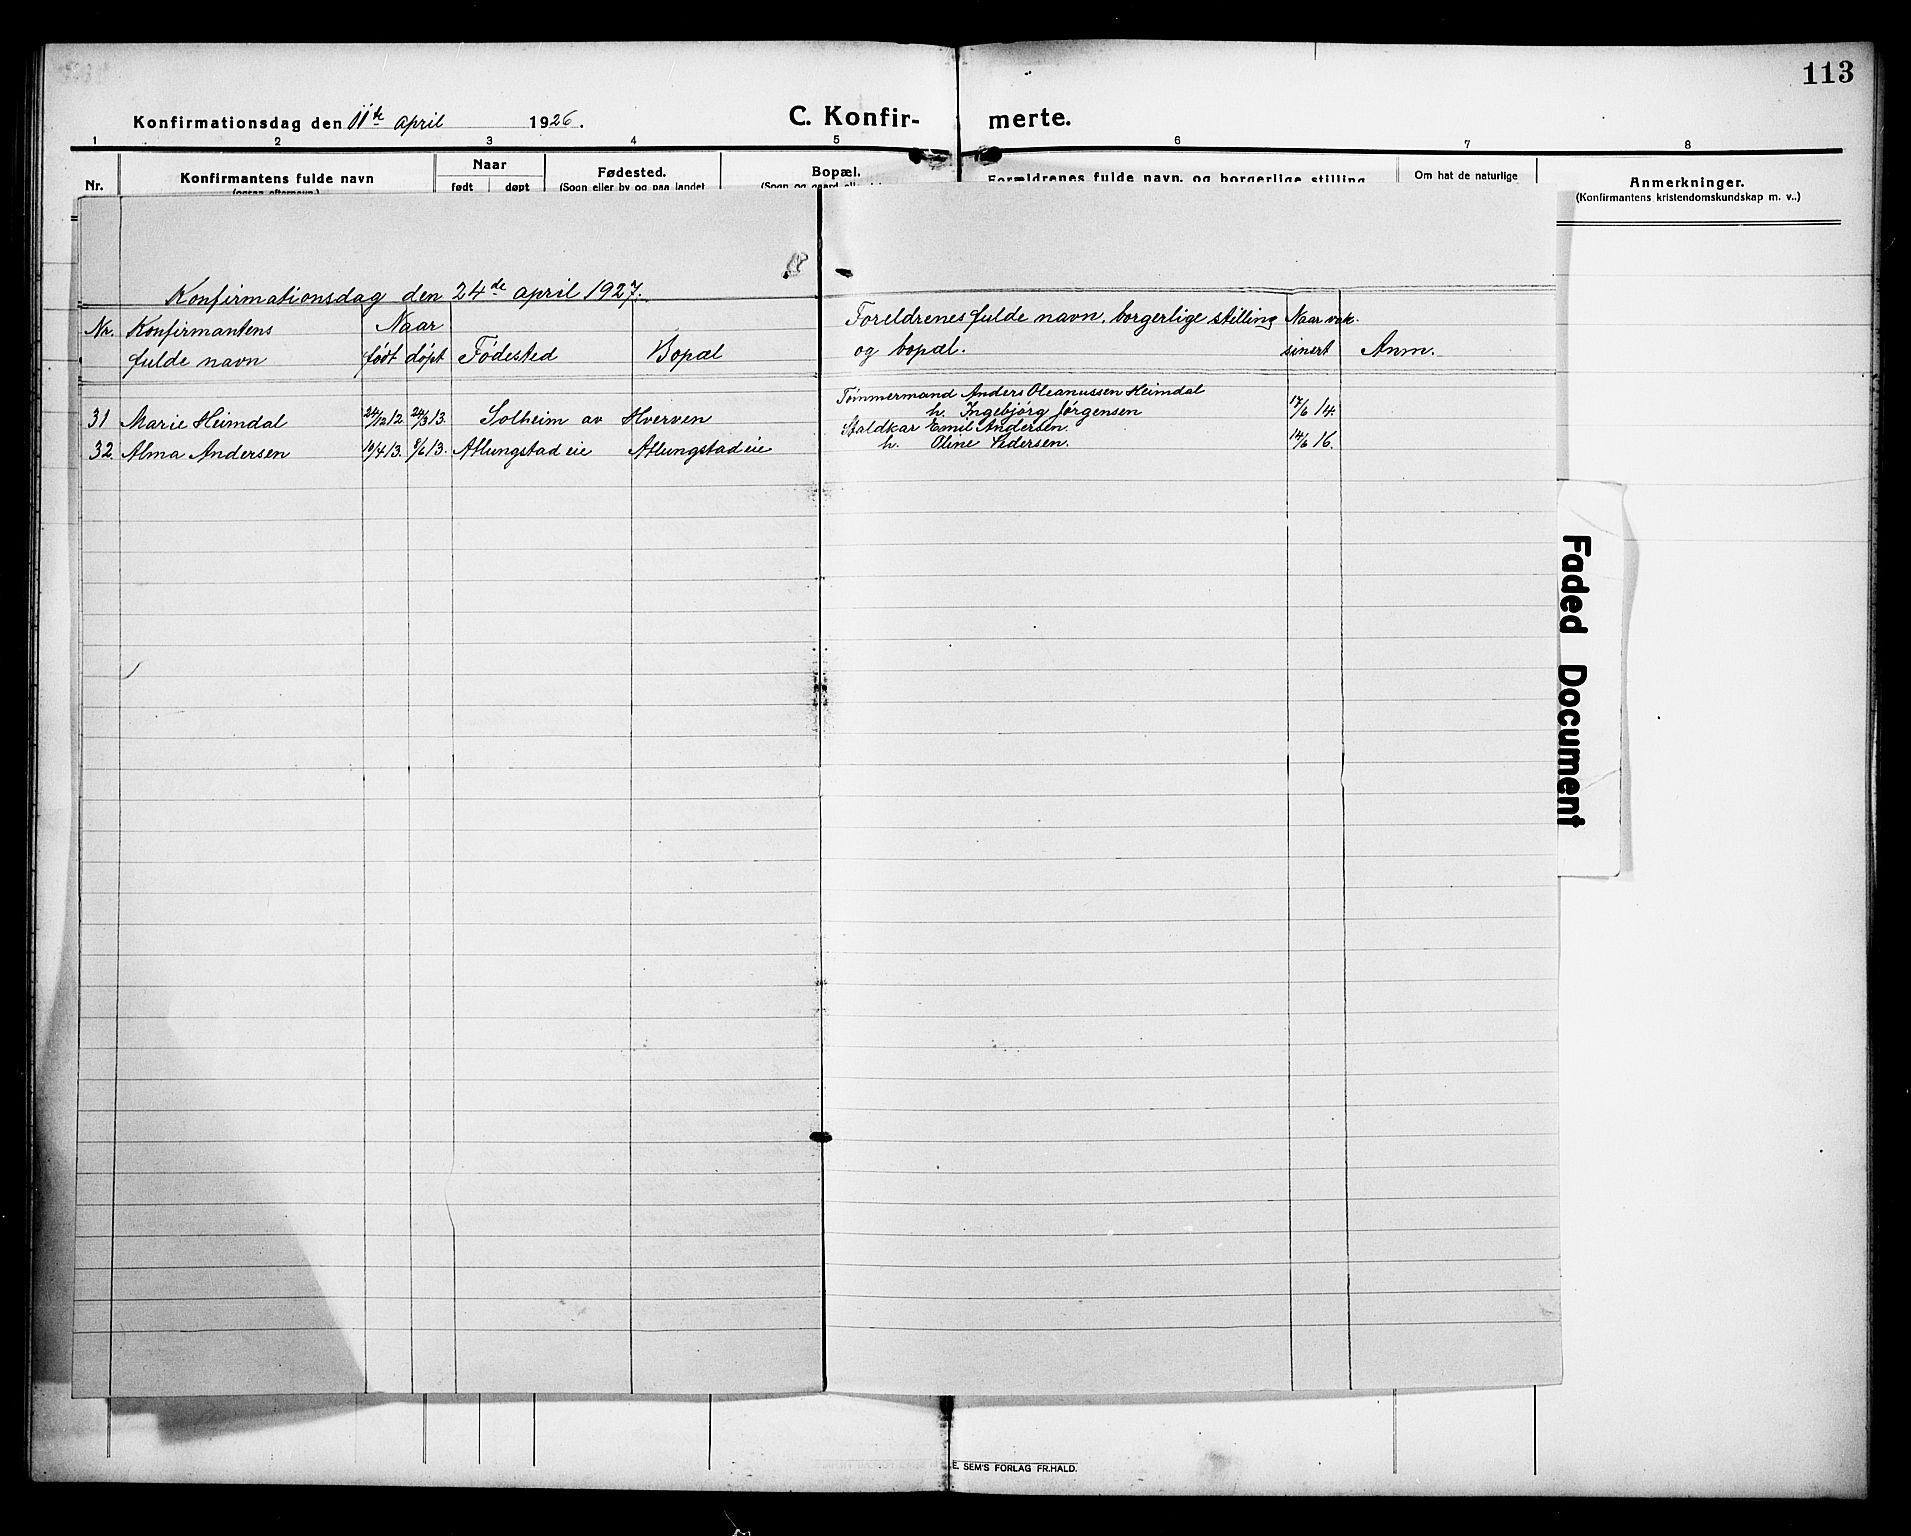 113
Konfirmationsdag den 11te april 1926.
C. Konfir- merte.
1 2 3 4 5 6 7 8
Nr. Konfirmantens fulde navn Naar Fødested. Bopæl. Forældrenes fulde navn, og borgerlige stilling Om hat de naturlige Anmerkninger.
(ogsaa efternavn.) født døpt (Sogn eller by og paa landet (Sogn og gaard (Konfirmantens kristendomskundskap m. v..)
Konfirmationsdag den 24de april 1927.
Nr. Konfirmantens Naar Foreldrenes fulde navn, borgerlige stilling Naar vak-
fulde navn født døpt Fødested Bopæl og bopæl. sinert Anm.
Tømmermand Anders Oleanussen Heimdal
31 Marie Heimdal 24/12 12 24/3 13. Solheim av Hverven h. Ingebjørg Jørgensen 17/6 14.
Staldkar Emil Andersen
32. Alma Andersen 19/4 13. 8/6 13. Atlungstad eie Atlungstad eie h. Oline Pedersen. 14/6 16.
Faded Document
E. SEM'S FORLAG FR.HALD.